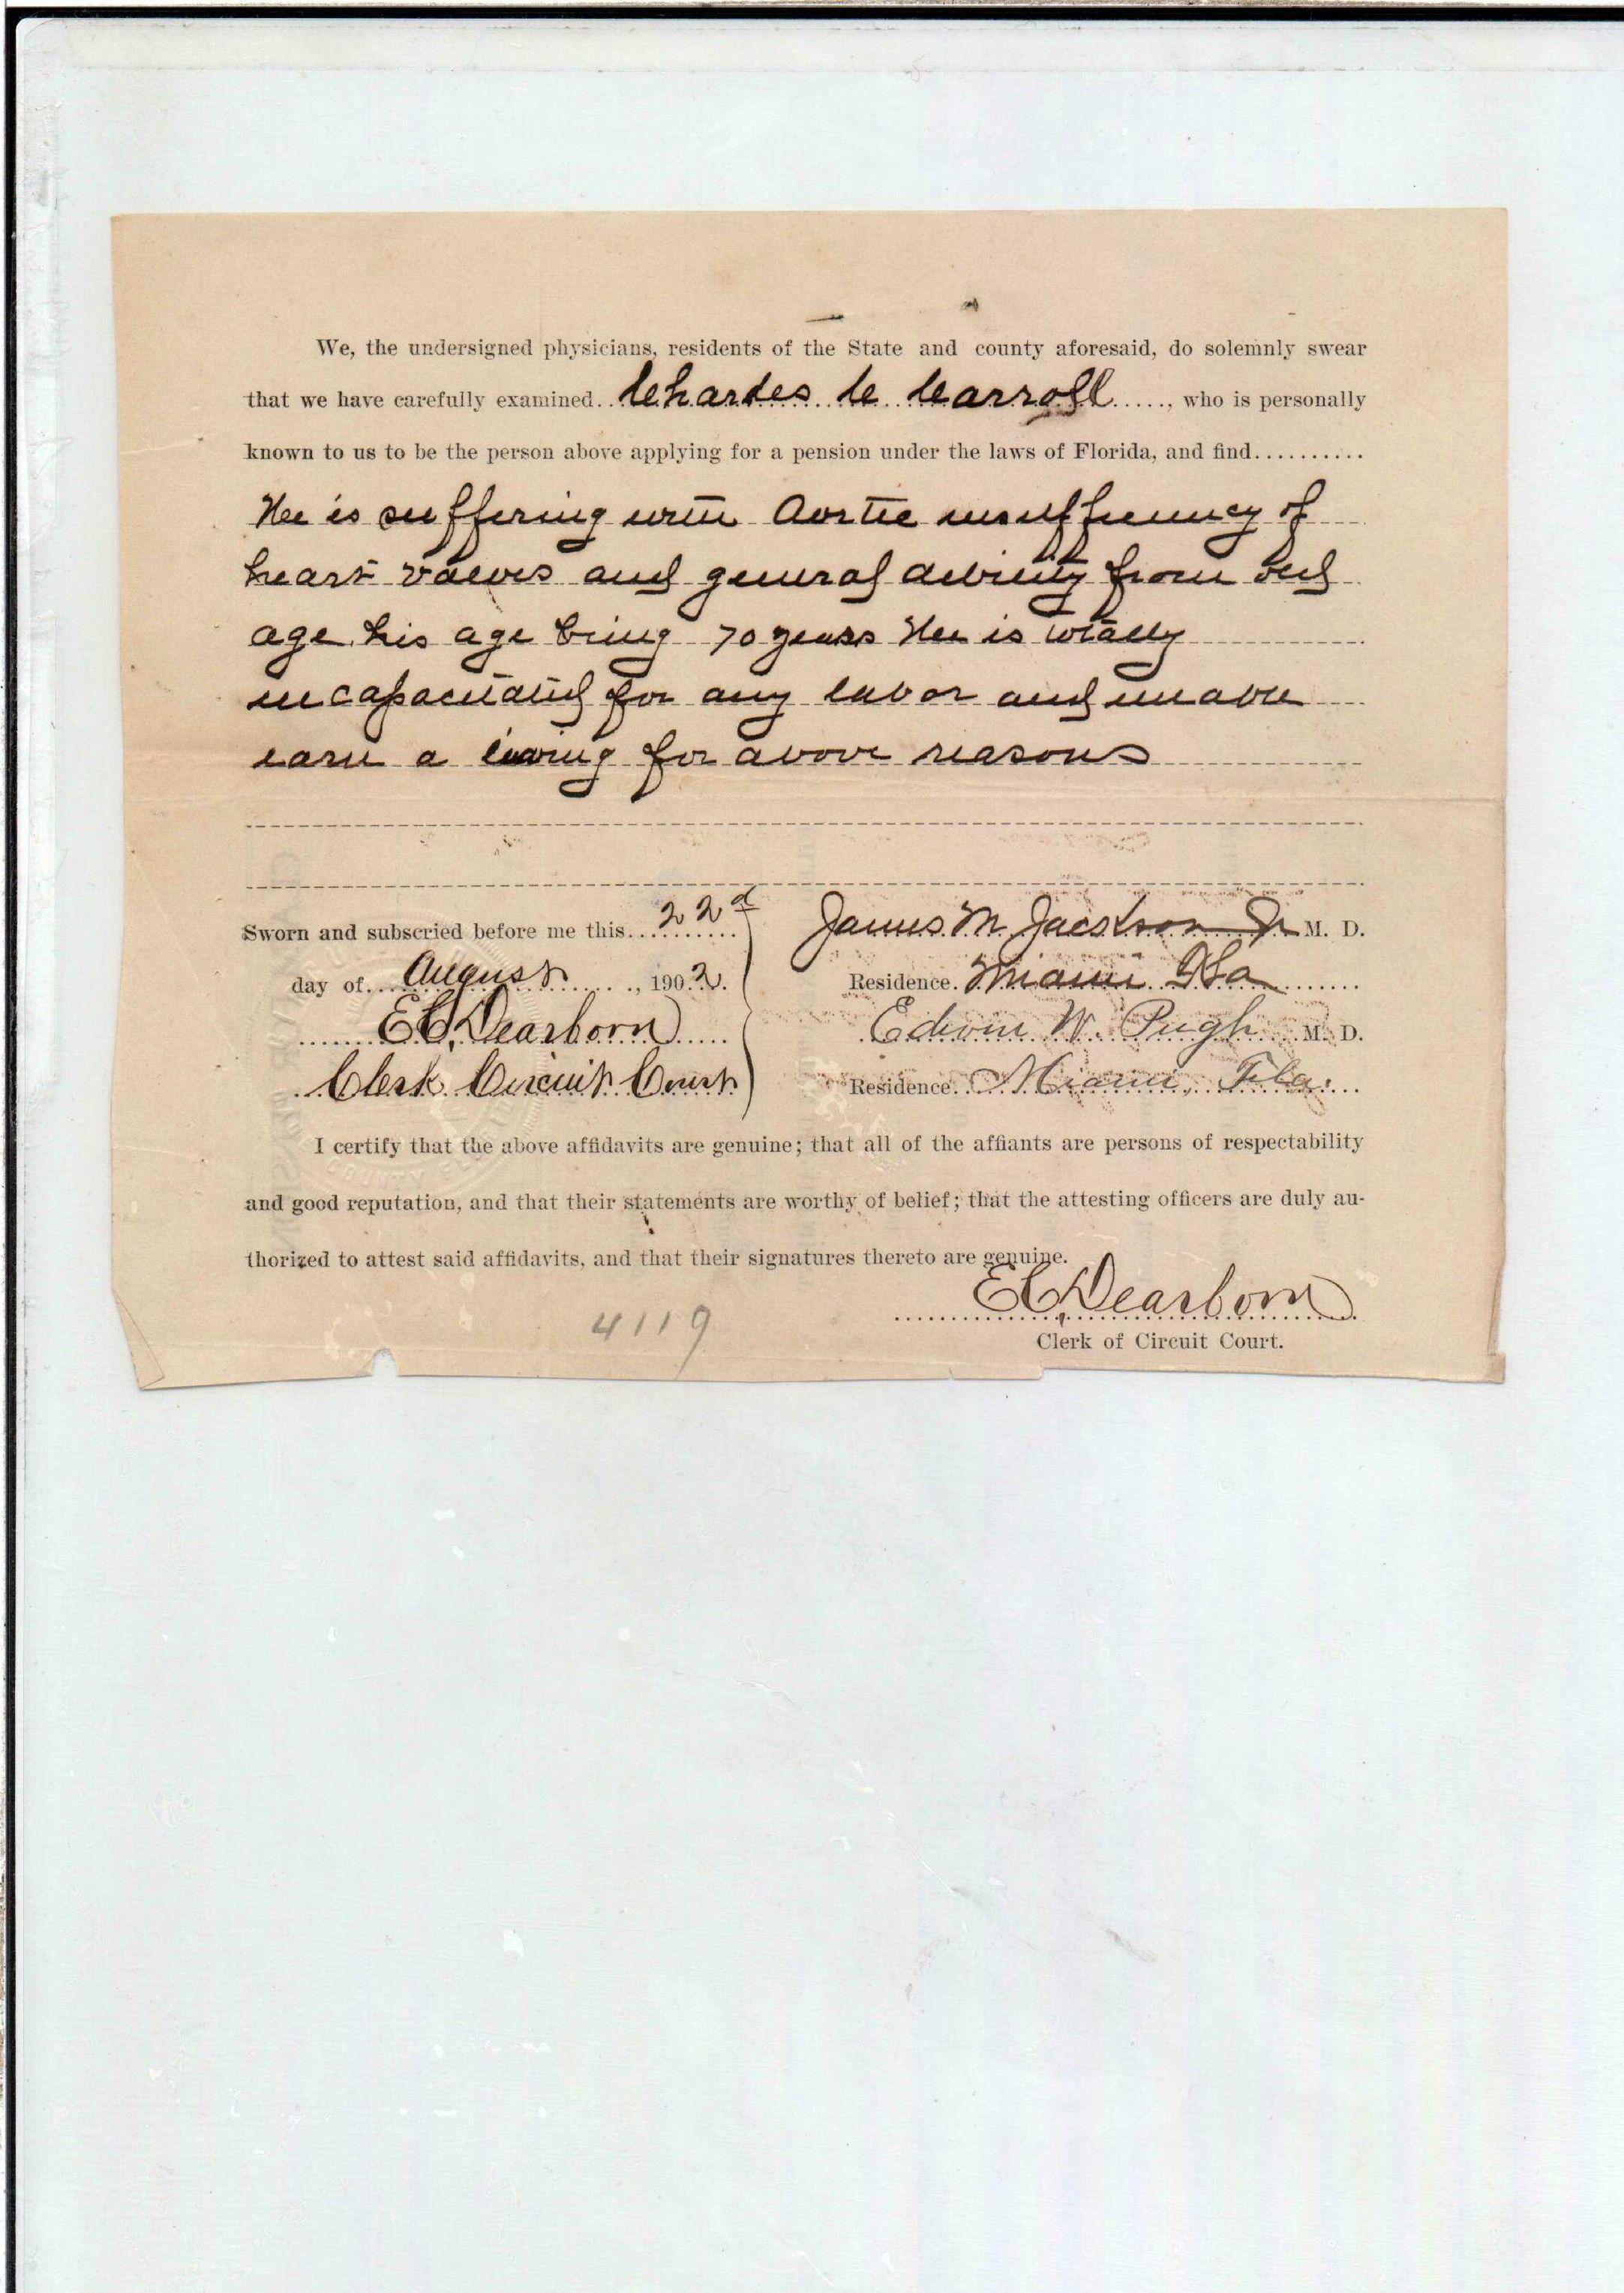 We, the undersigned physicians, residents of the State and county aforesaid, do solemnly swear
that we have carefully examined Charles C Carroll, who is personally
known to us to be the person above applying for a pension under the laws of Florida, and find
He is suffering with Aortic insufficiency of
heart valves and general debility from old
age his age being 70 years He is totally
incapacitated for any labor and unable
earn a living for above reasons
Sworn and subscried before me this 22d
day of August, 1902.
E C Dearborn
Clerk Circuit Court
James M Jackson Jr M. D.
Residence. Miami Fla
Edwin W. Pugh M. D.
Residence. Miami, Fla.
I certify that the above affidavits are genuine; that all of the affiants are persons of respectability
and good reputation, and that their statements are worthy of belief; that the attesting officers are duly au-
thorized to attest said affidavits, and that their signatures thereto are genuine.
E C Dearborn
Clerk of Circuit Court.
4119